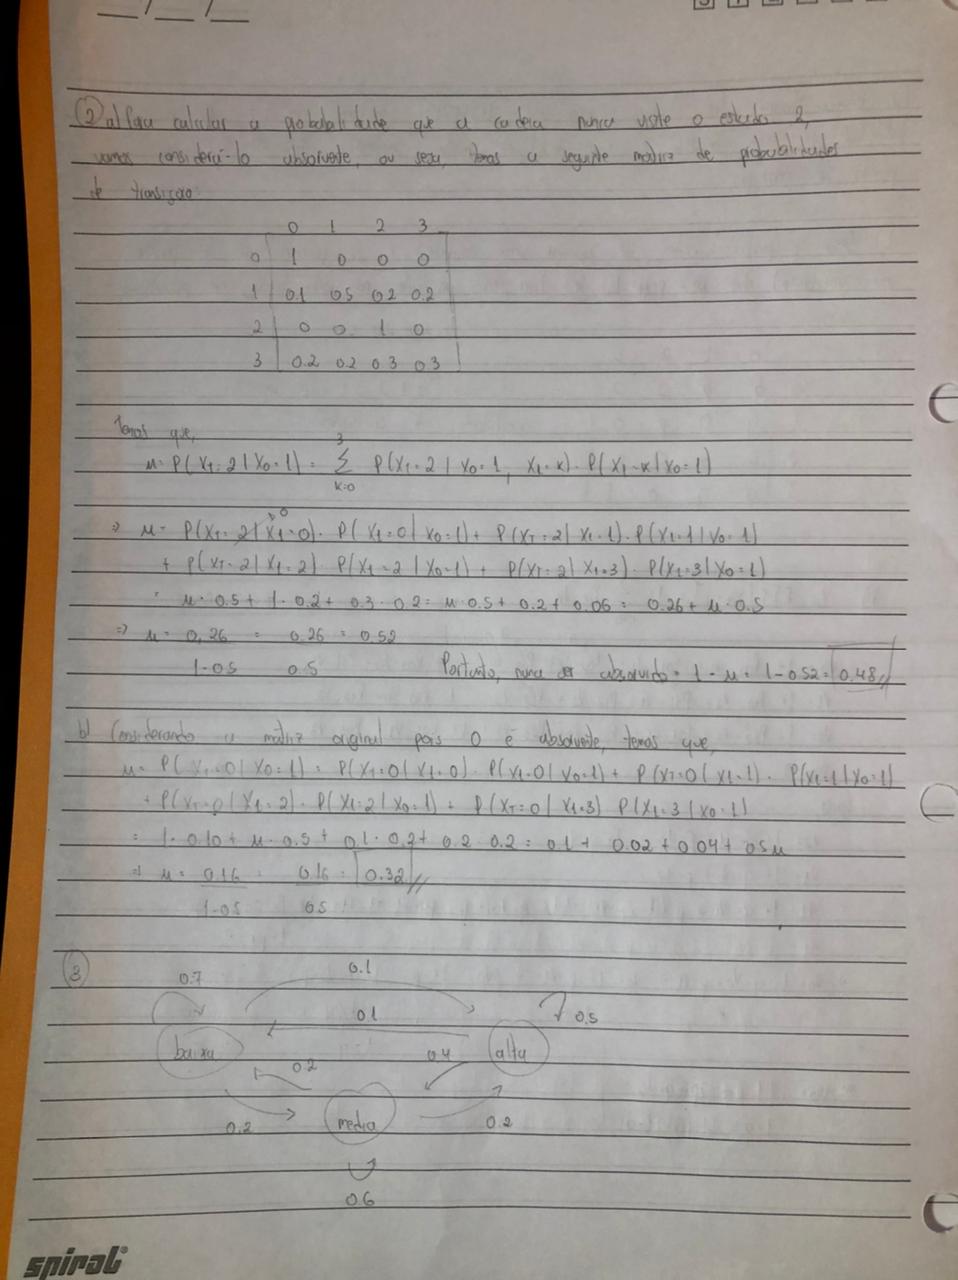 __/__/__
2) a) Para calcular a probabilidade que a cadeia nunca visite o estado 2,
vamos considerá-lo absolvente, ou seja, temos a seguinte matriz de probabilidades
de transição:
0 1 2 3
0 1 0 0 0
1 0.1 0.5 0.2 0.2
2 0 0 1 0
3 0.2 0.2 0.3 0.3
Temos que,
μ = P(X_T = 2 | X_0 = 1) = Σ_{k=0}^{3} P(X_T = 2 | X_0 = 1, X_1 = k) · P(X_1 = k | X_0 = 1)
⇒ μ = P(X_T = 2 | X_1 = 0) · P(X_1 = 0 | X_0 = 1) + P(X_T = 2 | X_1 = 1) · P(X_1 = 1 | X_0 = 1)
+ P(X_T = 2 | X_1 = 2) · P(X_1 = 2 | X_0 = 1) + P(X_T = 2 | X_1 = 3) · P(X_1 = 3 | X_0 = 1)
= μ · 0.5 + 1 · 0.2 + 0.3 · 0.2 = μ · 0.5 + 0.2 + 0.06 = 0.26 + μ · 0.5
⇒ μ = 0,26 = 0.26 = 0.52
1-0.5 0.5 Portanto, nunca ser absorvido = 1 - μ = 1 - 0.52 = 0.48 //
b) Considerando a matriz original pois 0 é absolvente, temos que,
μ = P(X_T = 0 | X_0 = 1) = P(X_T = 0 | X_1 = 0) · P(X_1 = 0 | X_0 = 1) + P(X_T = 0 | X_1 = 1) · P(X_1 = 1 | X_0 = 1)
+ P(X_T = 0 | X_1 = 2) · P(X_1 = 2 | X_0 = 1) + P(X_T = 0 | X_1 = 3) P(X_1 = 3 | X_0 = 1)
= 1 · 0.10 + μ · 0.5 + 0.1 · 0.2 + 0.2 · 0.2 = 0.1 + 0.02 + 0.04 + 0.5μ
⇒ μ = 0.16 = 0.16 = 0.32 //
1-0.5 0.5
3
0.7 0.1
0.1 0.5
baixa 0.2 0.4 alta
0.2 media 0.2
0.6
spiral